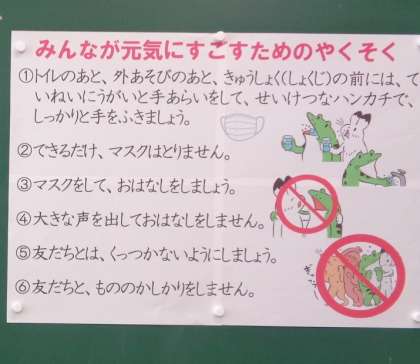 みんなが元気にすごすためのやくそく
①トイレのあと、外あそびのあと、きゅうしょく((しょくじ)の前には、て
いねいにうがいと手あらいをして、せいけつなハンカチで、
しっかりと手をふきましょう。
②できるだけ、マスクはとりません。
③マスクをして、おはなしをしましょう。
④大きな声を出しておはなしをしません。
⑤友だちとは、くっつかないようにしましょう。
⑥友だちと、もののかしかりをしません。